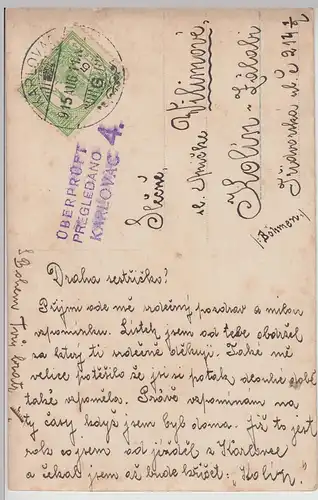 KARLOVAC
915
ÜBERPRÜFT
PREGLEDANO
KARLOVAC 4.
Slečně,
sl. Aničke Vilimové,
Kolín - Zálabí
č 214
/Böhmen/
Draha sestřičko!
Přijmi ode mě srdečný pozdrav a milou
vzpomínku. Lístek jsem od tebe obdržel
za který ti srdečně děkuji. Také mě
velice potěšilo že jsi si po tak dlouhé době
také vzpoměla. Právě vzpomínam na
ty časy když jsem byl doma. Již to jest
rok co jsem od jížděl z Karlovce
a čekal jsem až bude křičet: „Kolín."
S Bohem Tvůj bratr